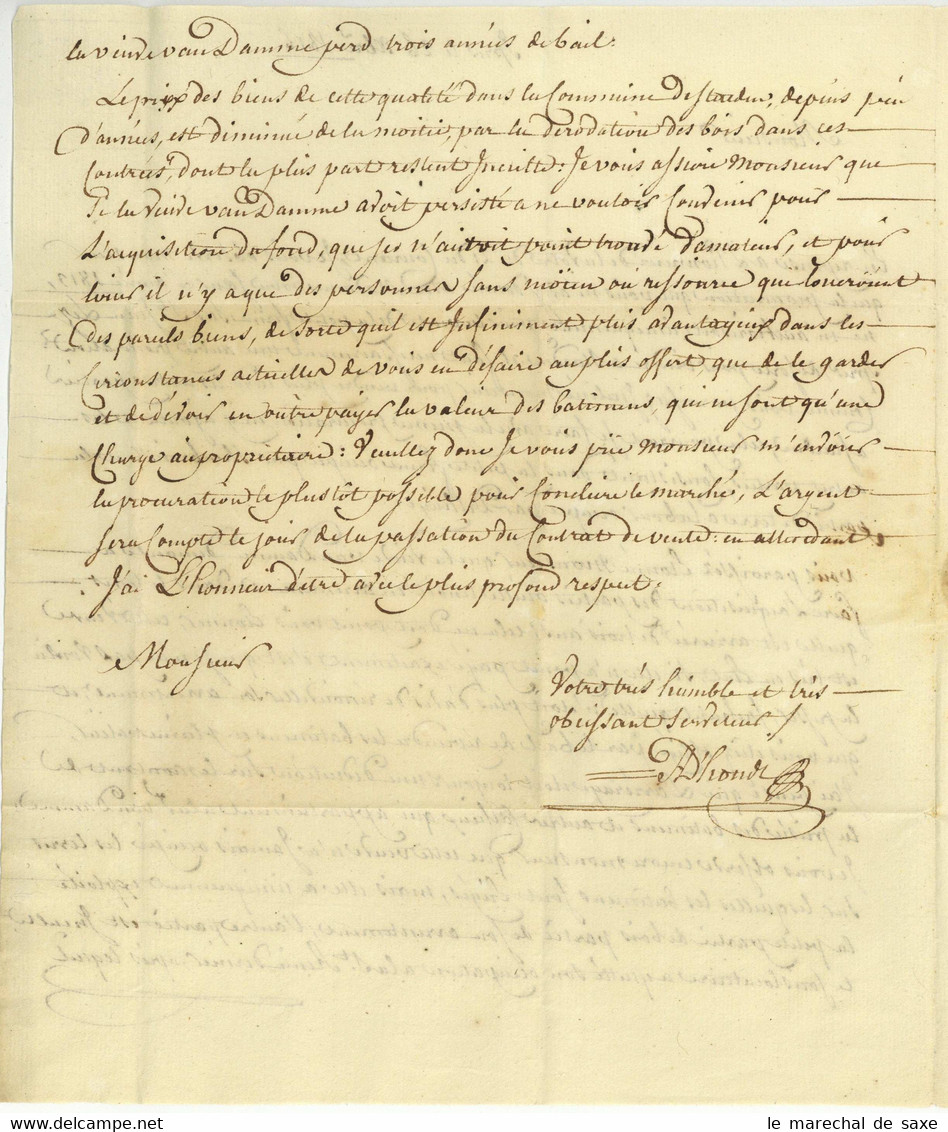 la veuve van Damme perd trois années de bail.
Le prix des biens de cette qualité dans la Commune de staden, depuis peu
d'années, est diminué de la moitié, par la derodation des bois dans ces
Contreés, dont la plus part restent Inculte: Je vous assure Monsieur que
Si la veuve van Damme avoit persisté a ne vouloir Convenir pour
L'acquisition du fond, que je n'aurois point trouvé d'amateur, et pour
louer il n'y a que des personnes sans moïen ou ressource que loueroïent
des pareils biens, de sorte qu'il est Infiniment plus avantageux dans les
Circonstances actuelles de vous en défaire au plus offert que de le garder
et de dévoir en outre payer la valeur des batimens, qui ne sont qu'une
Charge au propriétaire: Veuillez donc Je vous prie Monsieur m'envoier
la procuration le plustôt possible pour Conclure le marché, L'argent
sera Compté le jour de la passation du Contrat de vente: en attendant
J'ai L'honneur d'être avec le plus profond respect.
Monsieur
Votre trés humble et trés
obeissant serviteur
D'hondt
le marechal de saxe